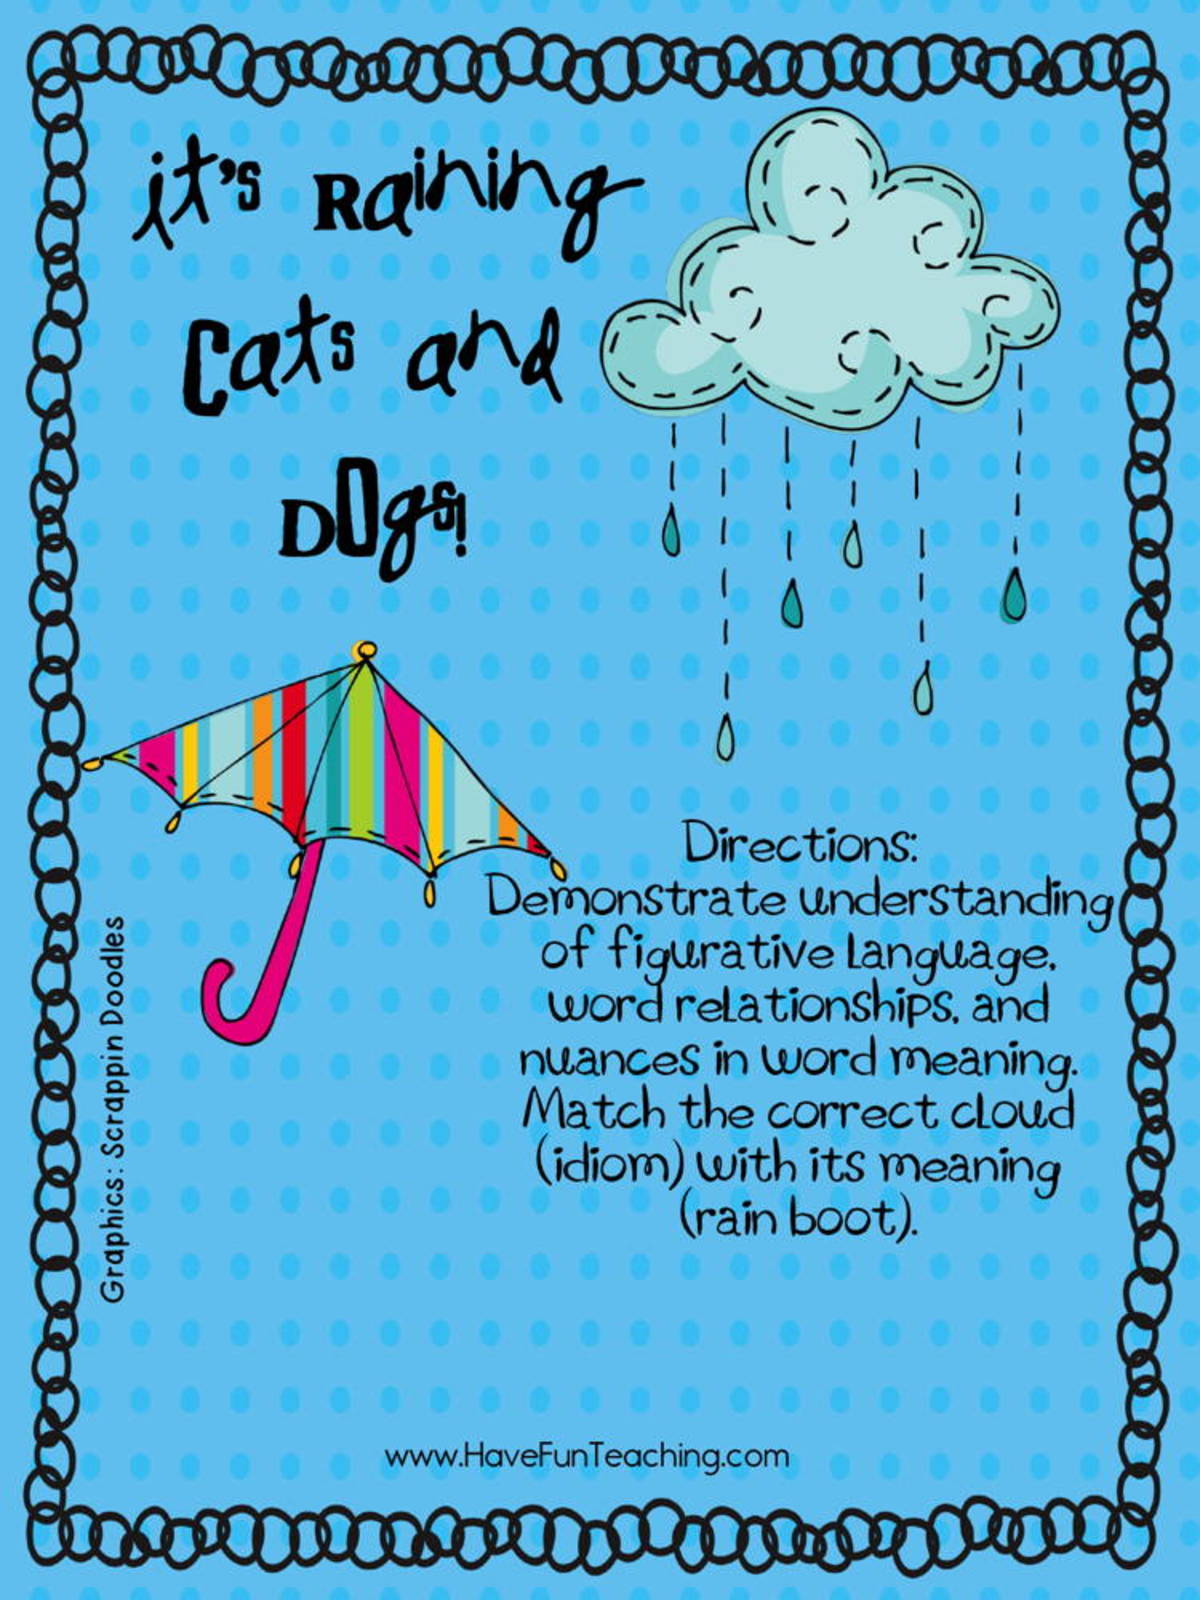 it's Raining
Cats and
Dogs!
Directions:
Demonstrate understanding
of figurative language,
word relationships, and
nuances in word meaning.
Match the correct cloud
(idiom) with its meaning
(rain boot).
Graphics: Scrappin Doodles
www.HaveFunTeaching.com